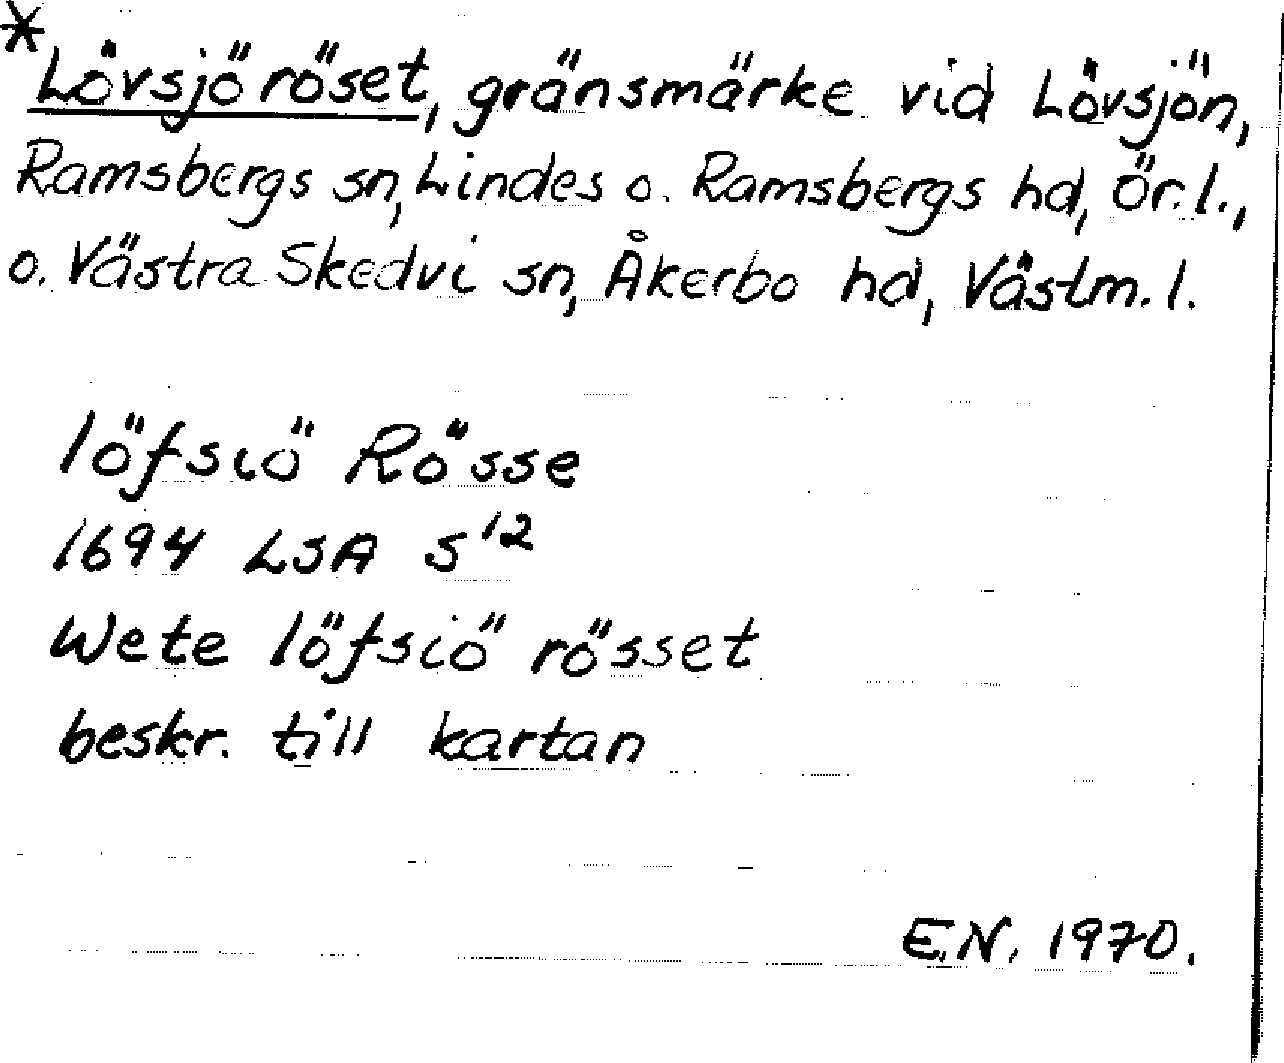 *Lövsjöröset, gränsmärke vid Lövsjön,
Ramsbergs sn, Lindes o. Ramsbergs hd, Ör. l.,
o. Västra Skedvi sn, Åkerbo hd, Västm. l.
löfsiö Rösse
1694 LSA S¹²
Wete löfsiö rösset
beskr. till kartan
E.N. 1970.